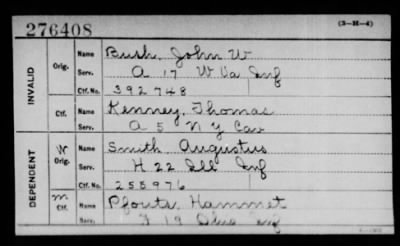 276408
(3-H-4)
INVALID
Orig. Name Bush, John W
Serv. A 17 W Va Inf
Ctf. No. 392748
Ctf. Name Kenney, Thomas
Serv. A 5 N Y Cav
DEPENDENT
W Orig. Name Smith Augustus
Serv. H 22 Ill Inf
Ctf. No. 255976
M Ctf. Name Pfouts, Hammet
Serv. 19 Ohio Inf